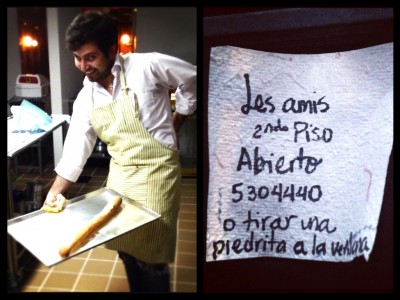 Les amis
2ndo Piso
Abierto
5304440
o tirar una
piedrita a la ventana